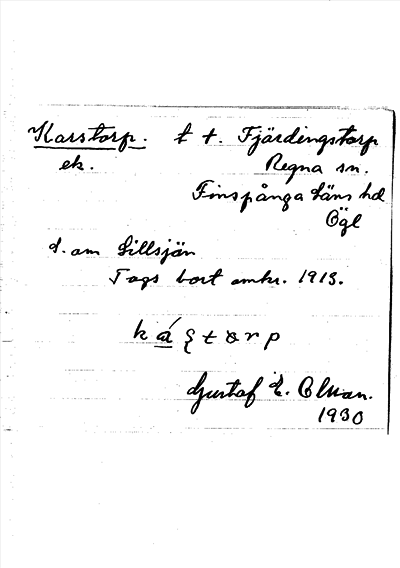 Karstorp. t t. Fjärdingstorp
ek. Regna sn.
Finspånga läns hd
Ögl
S. om Lillsjön
Togs bort omkr. 1913.
Gustaf E.
1930